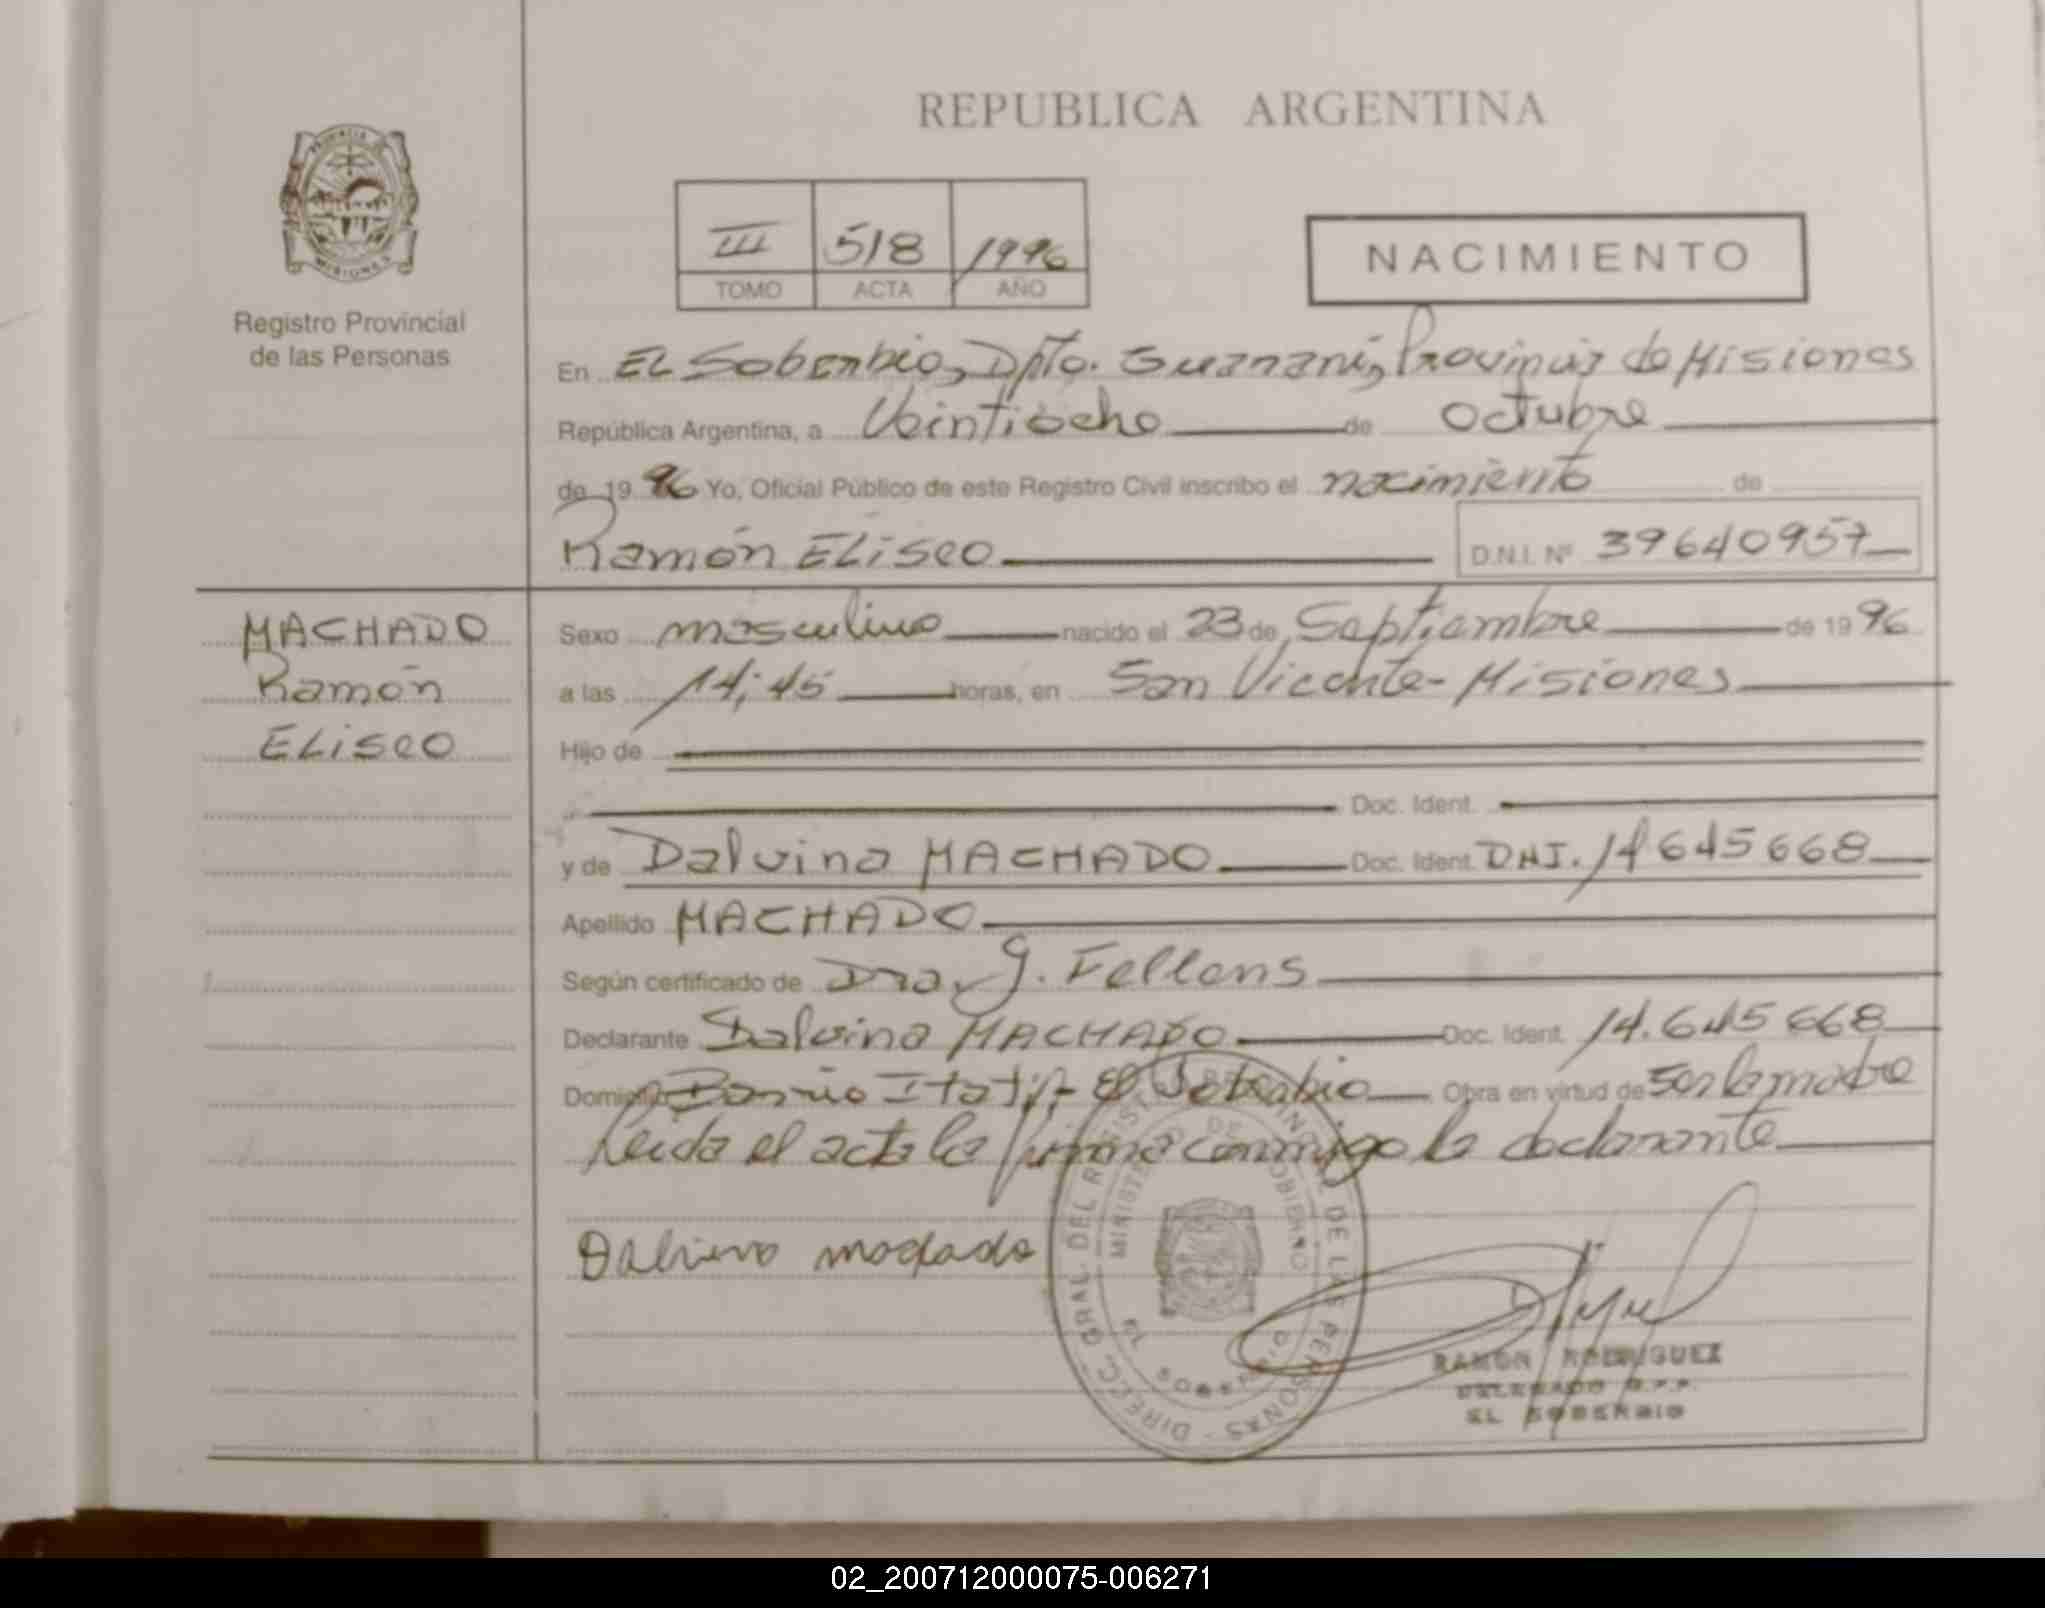 REPUBLICA ARGENTINA
PROVINCIA DE
MISIONES
Registro Provincial
de las Personas
III 518 1996
TOMO ACTA AÑO
NACIMIENTO
En EL Soberbio, Dpto. Guaraní, Provincia de Misiones
República Argentina, a Veintiocho de octubre
de 19 96 Yo, Oficial Público de este Registro Civil inscribo el nacimiento de
Ramón ELiseo D.N.I. Nº 39640957
MACHADO
Ramón
ELiseo
Sexo masculino nacido el 23 de Septiembre de 19 96
a las 14;45 horas, en San Vicente - Misiones
Hijo de
y Doc. Ident.
y de Dalvina MACHADO Doc. Ident. DNI. 14645668
Apellido MACHADO
Según certificado de Dra. J. Fellens
Declarante Dalvina MACHADO Doc. Ident. 14.645668
Domicilio Barrio Itatí - El Soberbio Obra en virtud de Ser la madre
Leida el acta la firma conmigo la declarante
Dalvina machado
DIRECC. GRAL. DEL REGISTRO PROVINCIAL DE LAS PERSONAS
MINISTERIO DE GOBIERNO
EL SOBERBIO
RAMON RODRIGUEZ
DELEGADO R.P.P.
EL SOBERBIO
02_200712000075-006271